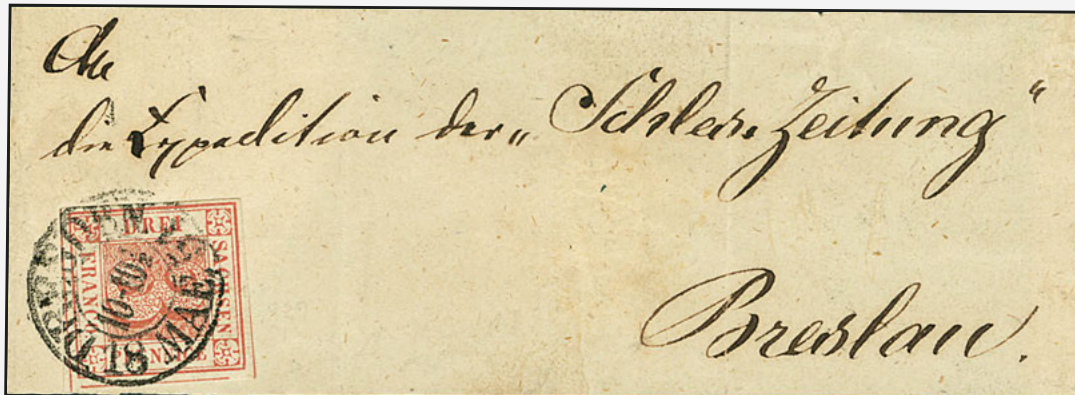 An
die Expedition der „Schles. Zeitung“
Breslau.
DREI
SACHSEN
FRANCO
PFENNIGE
3
DRESDEN
18 MAE